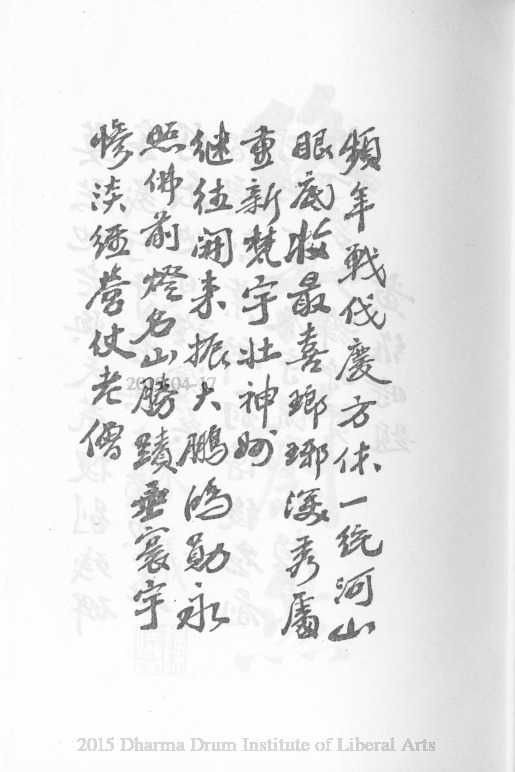 頻年戰伐慶方休一統河山
眼底收最喜瑯琊深秀屬
重新梵宇壯神州
继往開来振大鵬鴻勛永
照佛前燈名山勝蹟垂寰宇
慘淡經營仗老僧
2015 Dharma Drum Institute of Liberal Arts